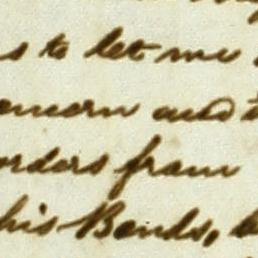 s to let me
concern and t
orders from
his Bonds, b